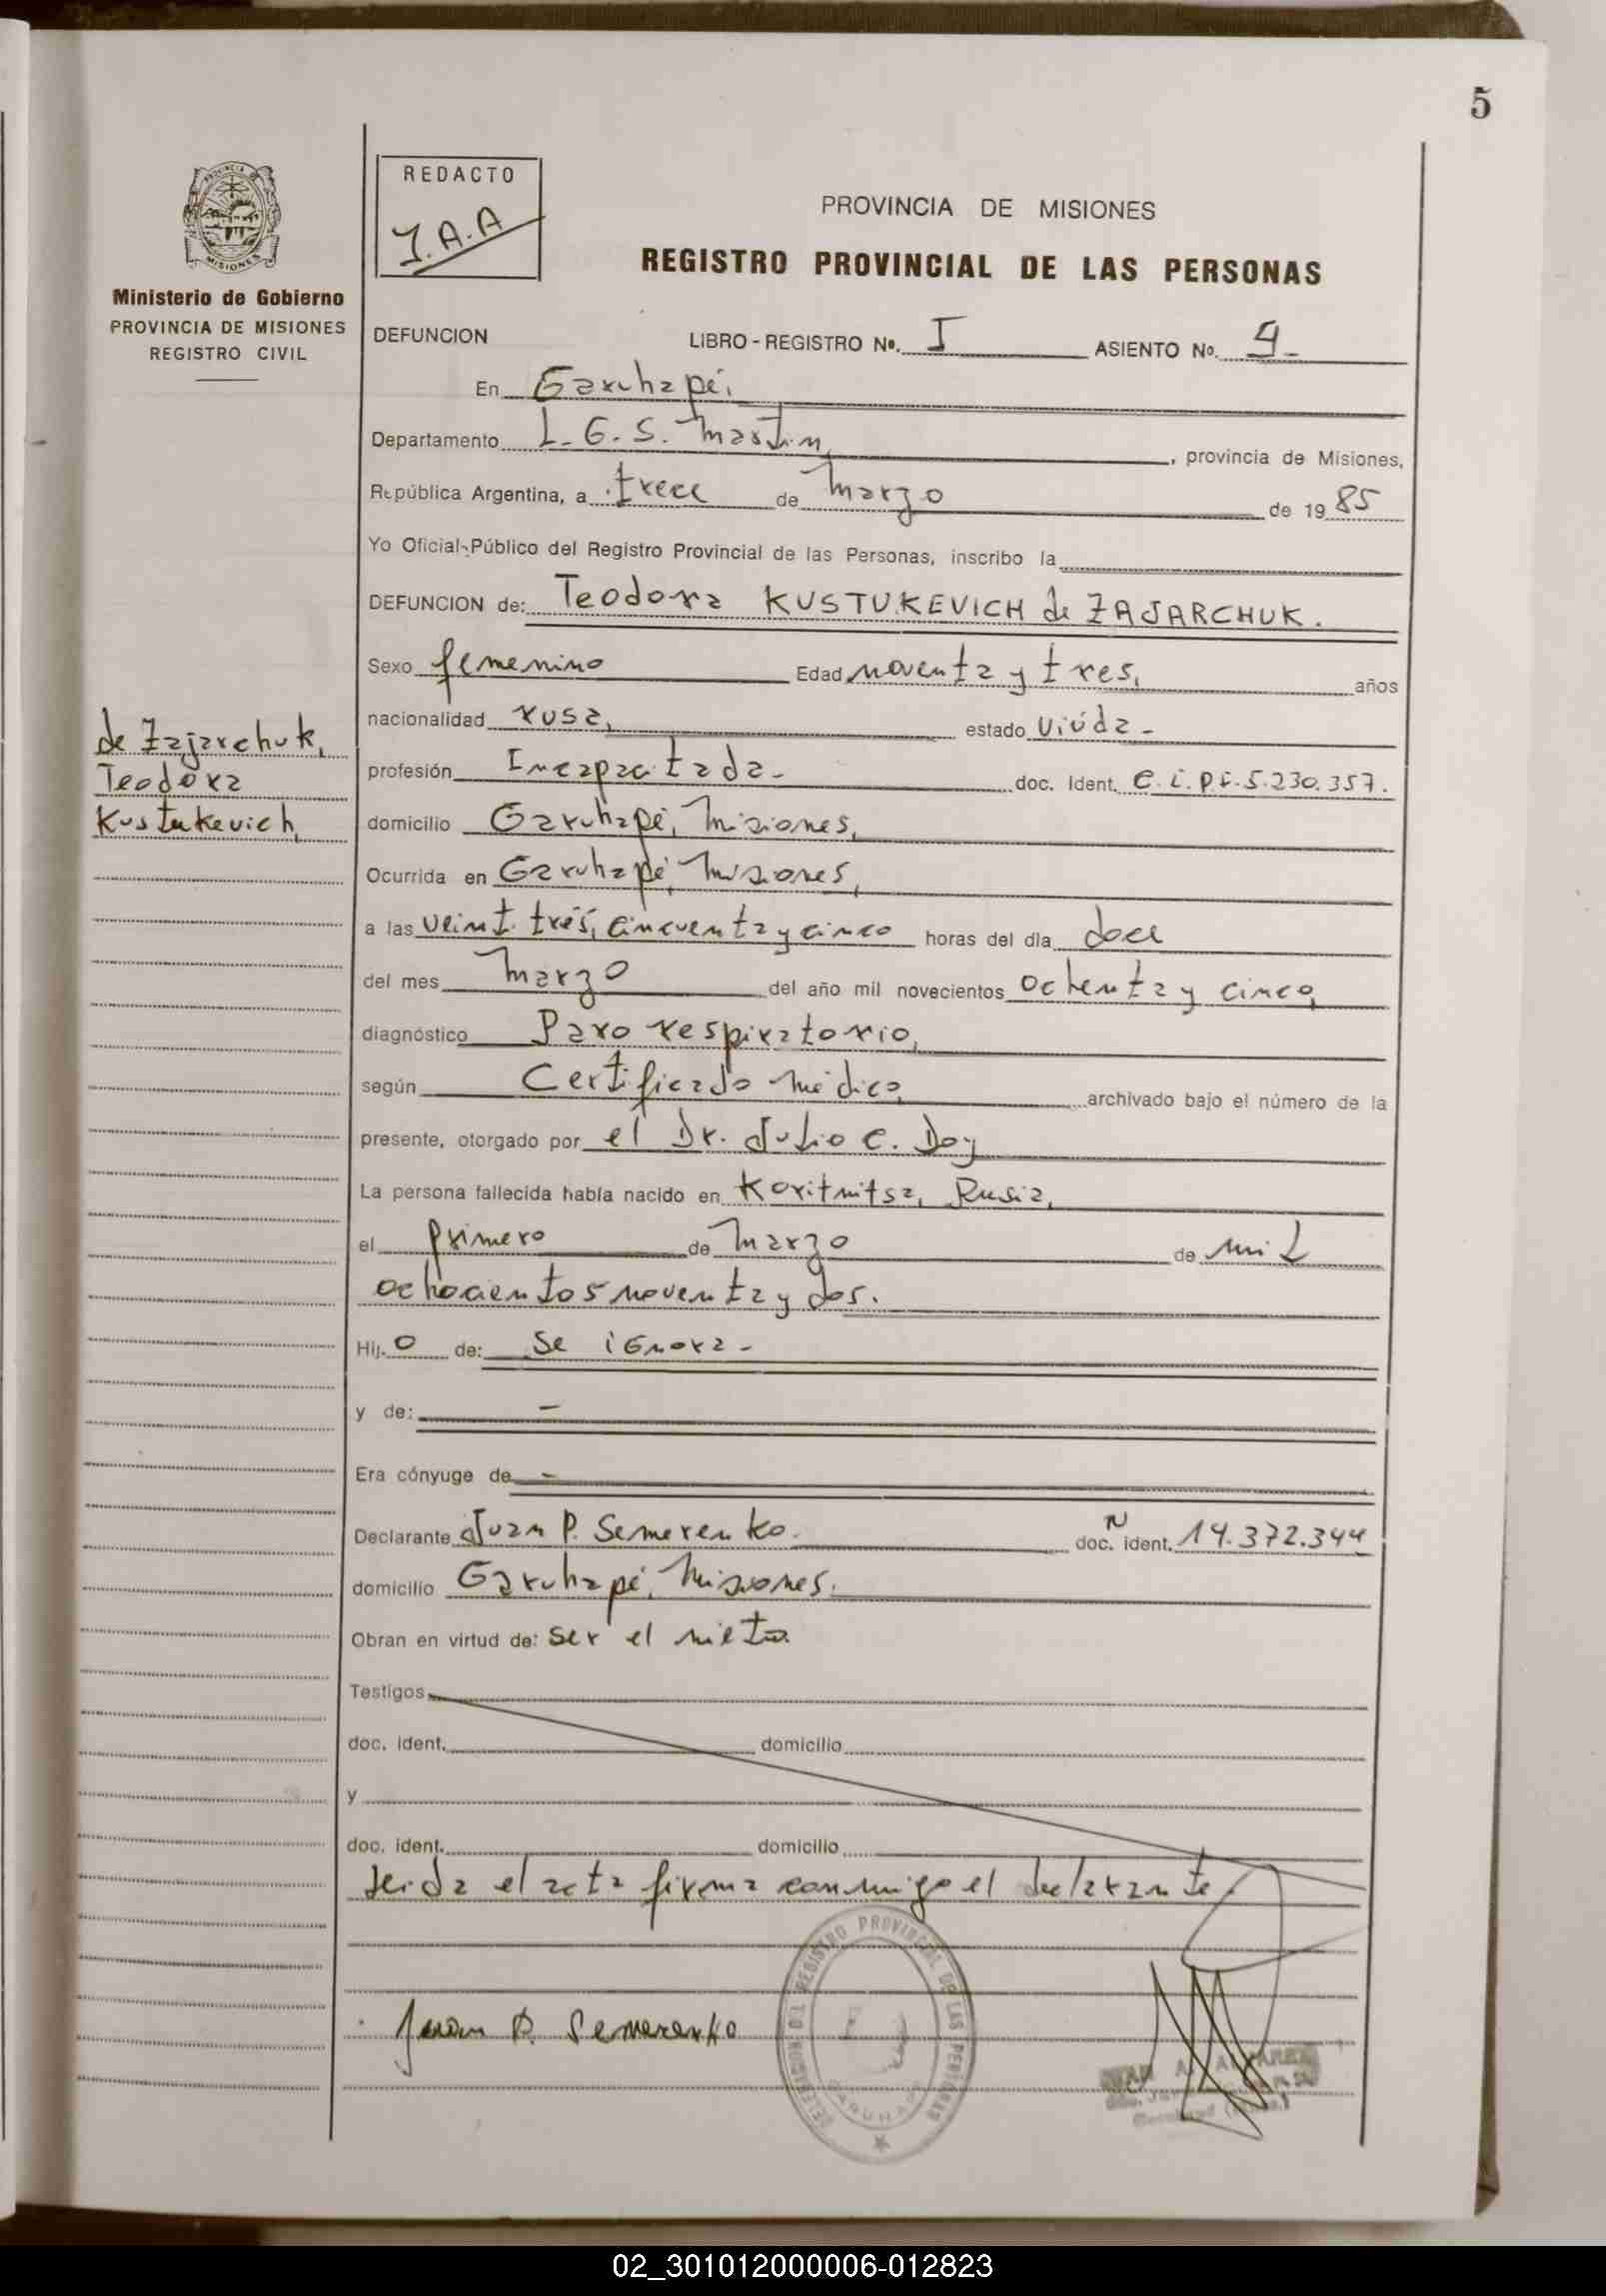 5
REDACTO
J.A.A
PROVINCIA DE MISIONES
REGISTRO PROVINCIAL DE LAS PERSONAS
MISIONES
Ministerio de Gobierno
PROVINCIA DE MISIONES
REGISTRO CIVIL
DEFUNCION LIBRO - REGISTRO Nº. I ASIENTO Nº. 9-
En Garuhapé,
Departamento L. G. S. Martin, provincia de Misiones,
República Argentina, a trece de Marzo de 19 85
Yo Oficial Público del Registro Provincial de las Personas, inscribo la
DEFUNCION de: Teodora KUSTUKEVICH de ZAJARCHUK.
Sexo femenino Edad noventa y tres, años
nacionalidad rusa, estado Viúda-
profesión Incapacitada- doc. Ident. C.i.p.f. 5.230.357.
domicilio Garuhapé, Misiones,
Ocurrida en Garuhapé, Misiones,
a las veinti trés, cincuenta y cinco horas del día doce
del mes Marzo del año mil novecientos ochenta y cinco,
diagnóstico Paro respiratorio,
según Certificado médico, archivado bajo el número de la
presente, otorgado por el Dr. Julio C. Doy
La persona fallecida había nacido en Koritnitsa, Rusia,
el primero de Marzo de mil
ochocientos noventa y dos.
Hij. o de: Se ignora-
y de: -
Era cónyuge de -
Declarante Juan P. Semerenko. doc. N ident. 14.372.344
domicilio Garuhapé, Misiones.
Obran en virtud de: ser el nieto
Testigos
doc. ident. domicilio
y
doc. ident. domicilio
Leida el acta firma conmigo el declarante,
Juan P. Semerenko
DELEGACION DEL REGISTRO PROVINCIAL DE LAS PERSONAS
GARUHAPE
de Zajarchuk,
Teodora
Kustukevich,
02_301012000006-012823